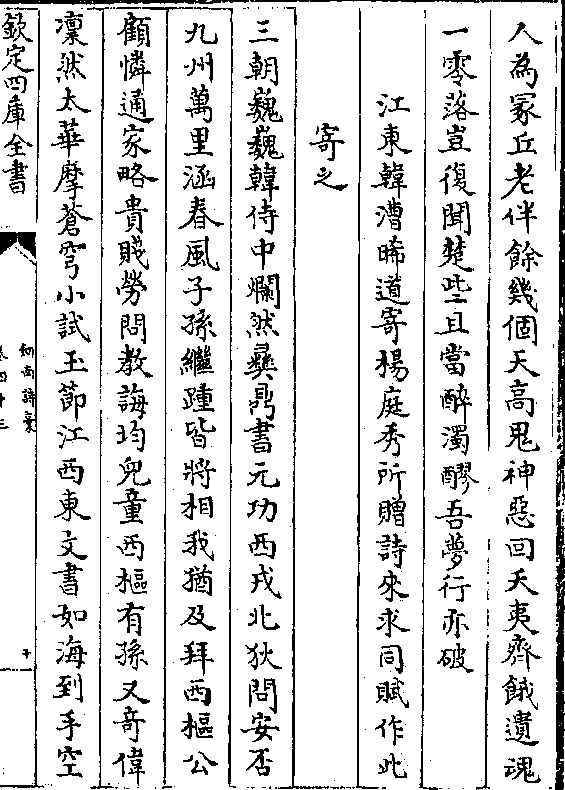 人為冢丘老伴餘幾個天高鬼神惡回夭夷齊餓遺魂
一零落豈復聞楚些且當醉濁醪吾夢行亦破
江東韓漕晞道寄楊庭秀所贈詩來求同賦作此
寄之
三朝巍巍韓侍中爛然彝鼎書元功西戎北狄問安否
九州萬里涵春風子孫繼踵皆將相我猶及拜西樞公
顧憐通家略貴賤勞問教誨均兒童西樞有孫又奇偉
凛然太華摩蒼穹小試玉節江西東文書如海到手空
欽定四庫全書
劍南詩稾
卷四十三